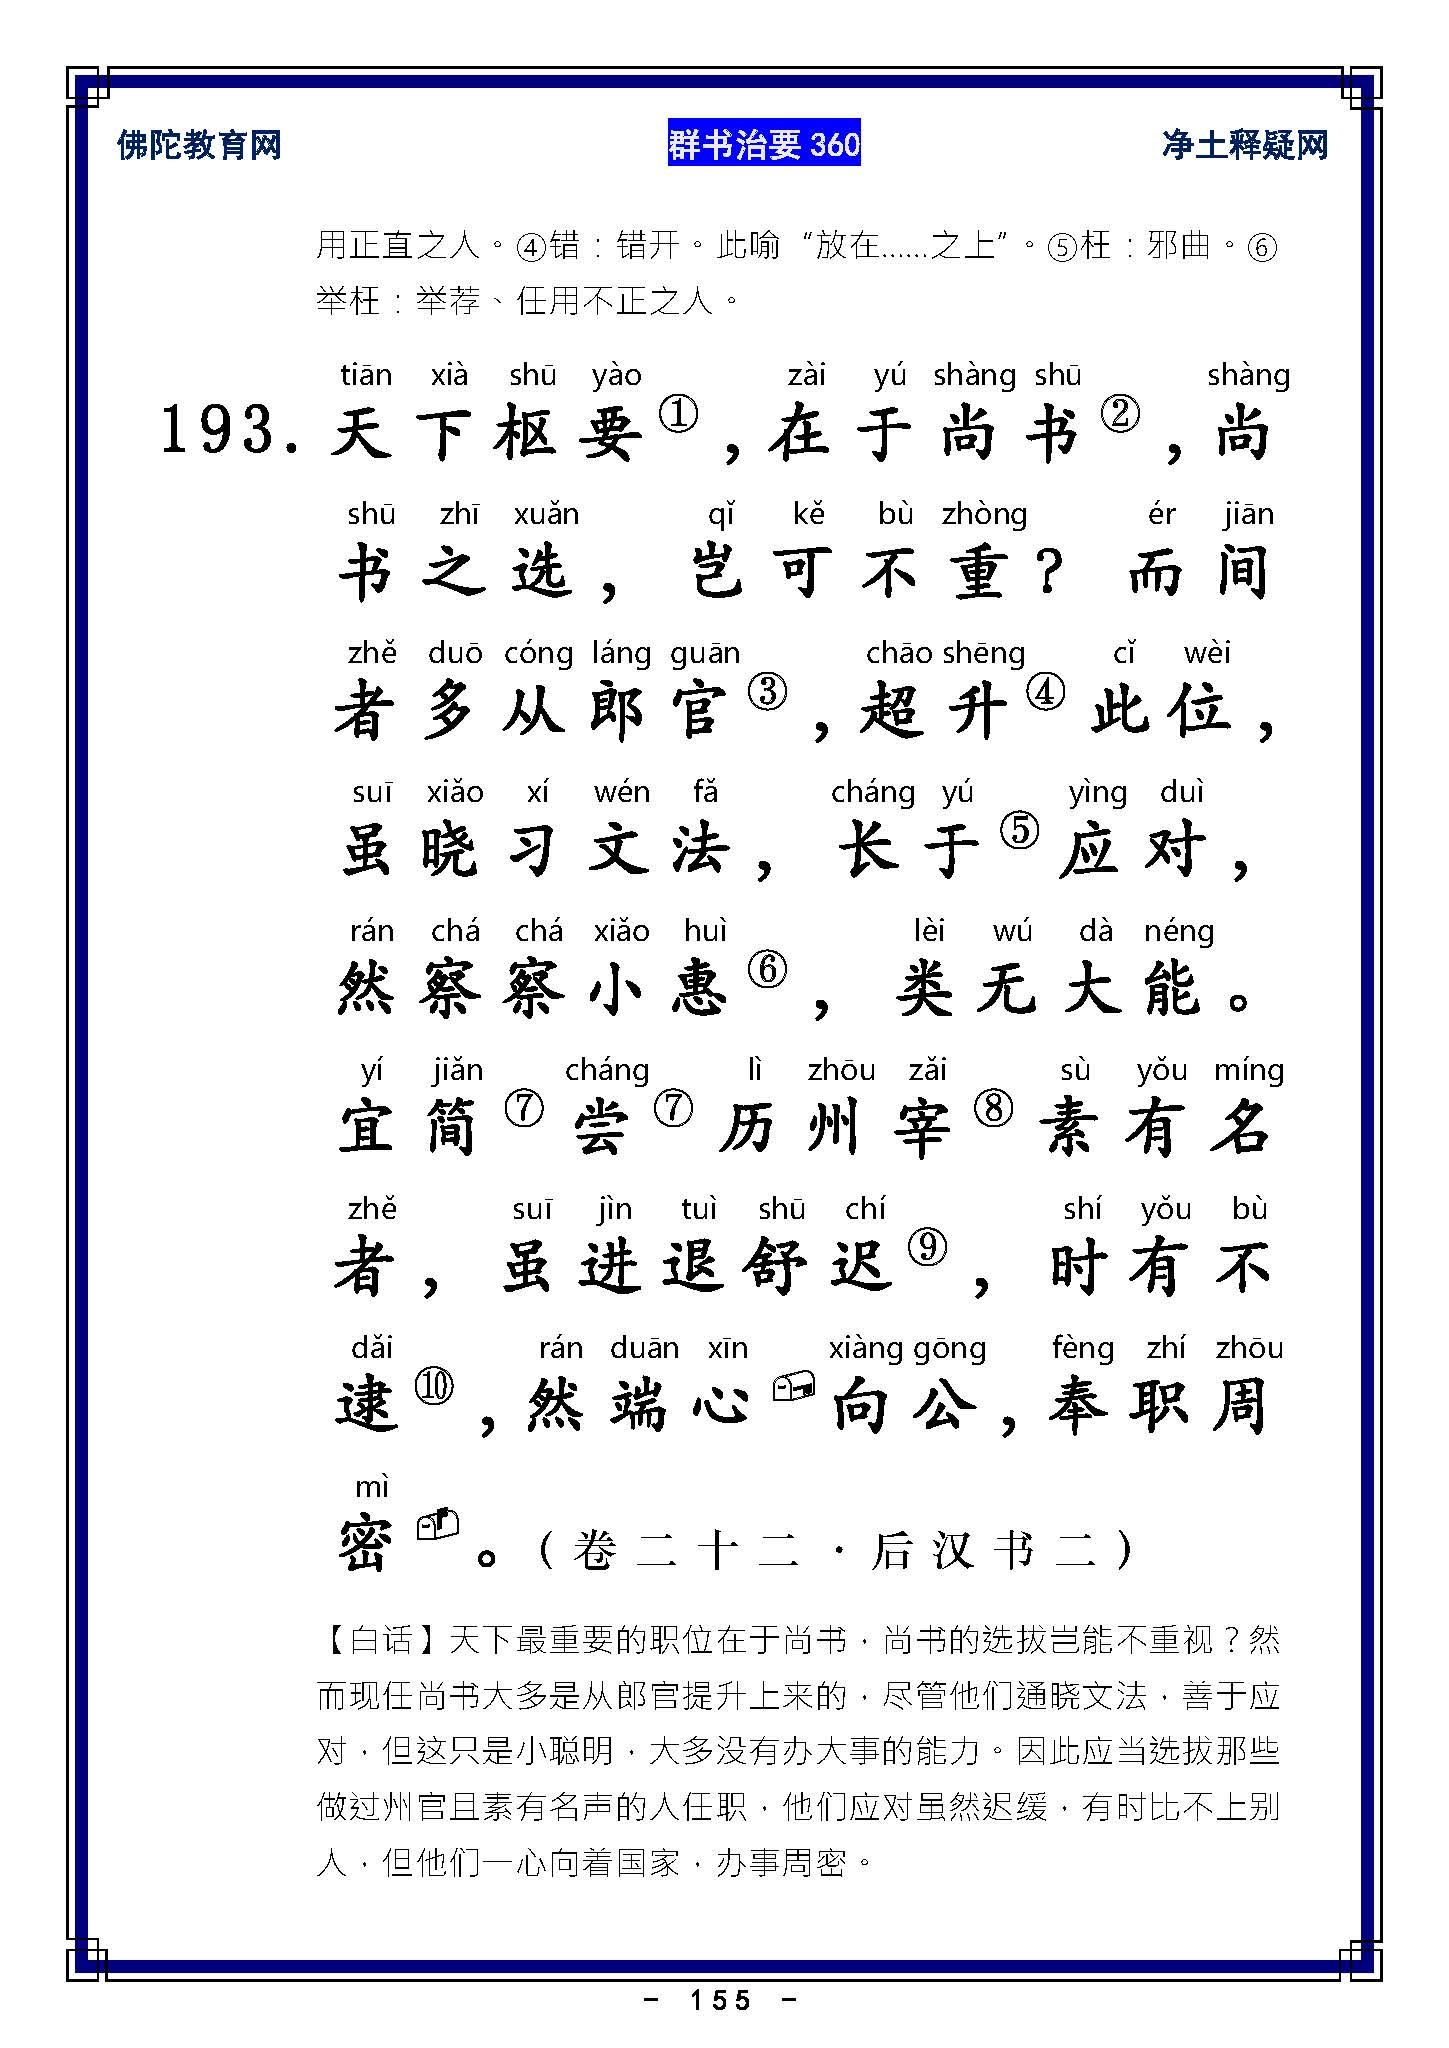 佛陀教育网 群书治要 360 净土释疑网
用正直之人。④错：错开。此喻“放在……之上”。⑤枉：邪曲。⑥
举枉：举荐、任用不正之人。
tiān xià shū yào zài yú shàng shū shàng
193. 天下枢要①，在于尚书②，尚
shū zhī xuǎn qǐ kě bù zhòng ér jiān
书之选， 岂可不重？ 而间
zhě duō cóng láng guān chāo shēng cǐ wèi
者多从郎官③，超升④此位，
suī xiǎo xí wén fǎ cháng yú yìng duì
虽晓习文法， 长于⑤应对，
rán chá chá xiǎo huì lèi wú dà néng
然察察小惠⑥， 类无大能。
yí jiǎn cháng lì zhōu zǎi sù yǒu míng
宜简⑦尝⑦历州宰⑧素有名
zhě suī jìn tuì shū chí shí yǒu bù
者， 虽进退舒迟⑨， 时有不
dǎi rán duān xīn xiàng gōng fèng zhí zhōu
逮⑩，然端心向公，奉职周
mì
密。（卷二十二·后汉书二）
【白话】天下最重要的职位在于尚书，尚书的选拔岂能不重视？然
而现任尚书大多是从郎官提升上来的，尽管他们通晓文法，善于应
对，但这只是小聪明，大多没有办大事的能力。因此应当选拔那些
做过州官且素有名声的人任职，他们应对虽然迟缓，有时比不上别
人，但他们一心向着国家，办事周密。
- 155 -